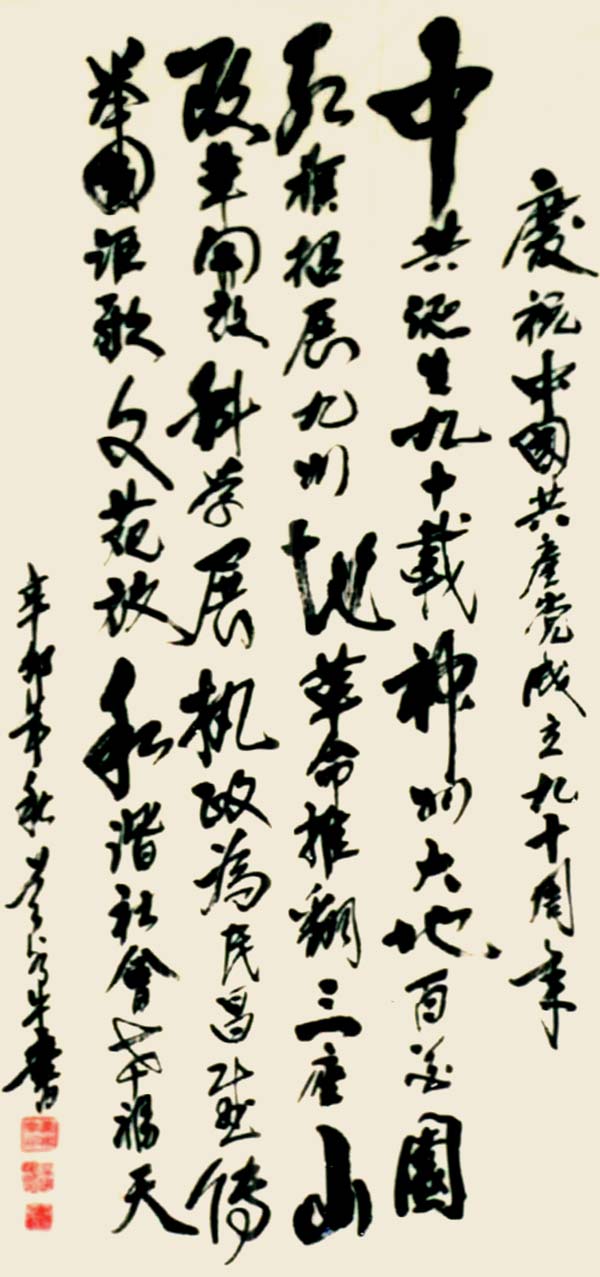 慶祝中國共產党成立九十周年
中共诞生九十載神州大地百花園
红旗招展九州地革命推翻三座山
改革開放科学展执政為民昌盛傳
举國讴歌文苑放和谐社會幸福天
辛卯年秋書